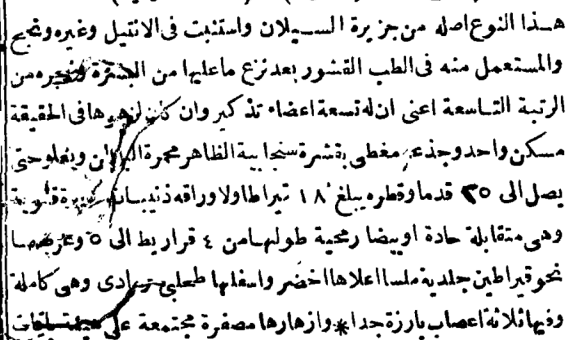 هـذا النوع اصله من جزيرة السـيلان واستنبت فى الانتيل وغيره ونجح
والمستعمل منه فى الطب القشور بعد نزع ما عليها من البشرة من
الرتبة التـاسعة اعنى ان له تسعة اعضاء تذكير وان كان لزهرها فى الحقيقة
مسكن واحد وجذعه مغطى بقشرة سنجابية الظاهر محمرة الباطن ويعلو حتى
يصل الى ٢٥ قدما وقطره يبلغ ١٨ قيراطا ولا وراقه ذنيبـات
وهى متقابلة حادة او بيضا رمحية طولهـا من ٤ قراريط الى ٥ وعرضهـا
نحو قيراطين جلدية ملسا اعلاها اخضر واسفلها طحلبى رمادى وهى كاملة
وفيها ثلاثة اعصاب بارزة جدا * وازهارها مصفرة مجتمعة على